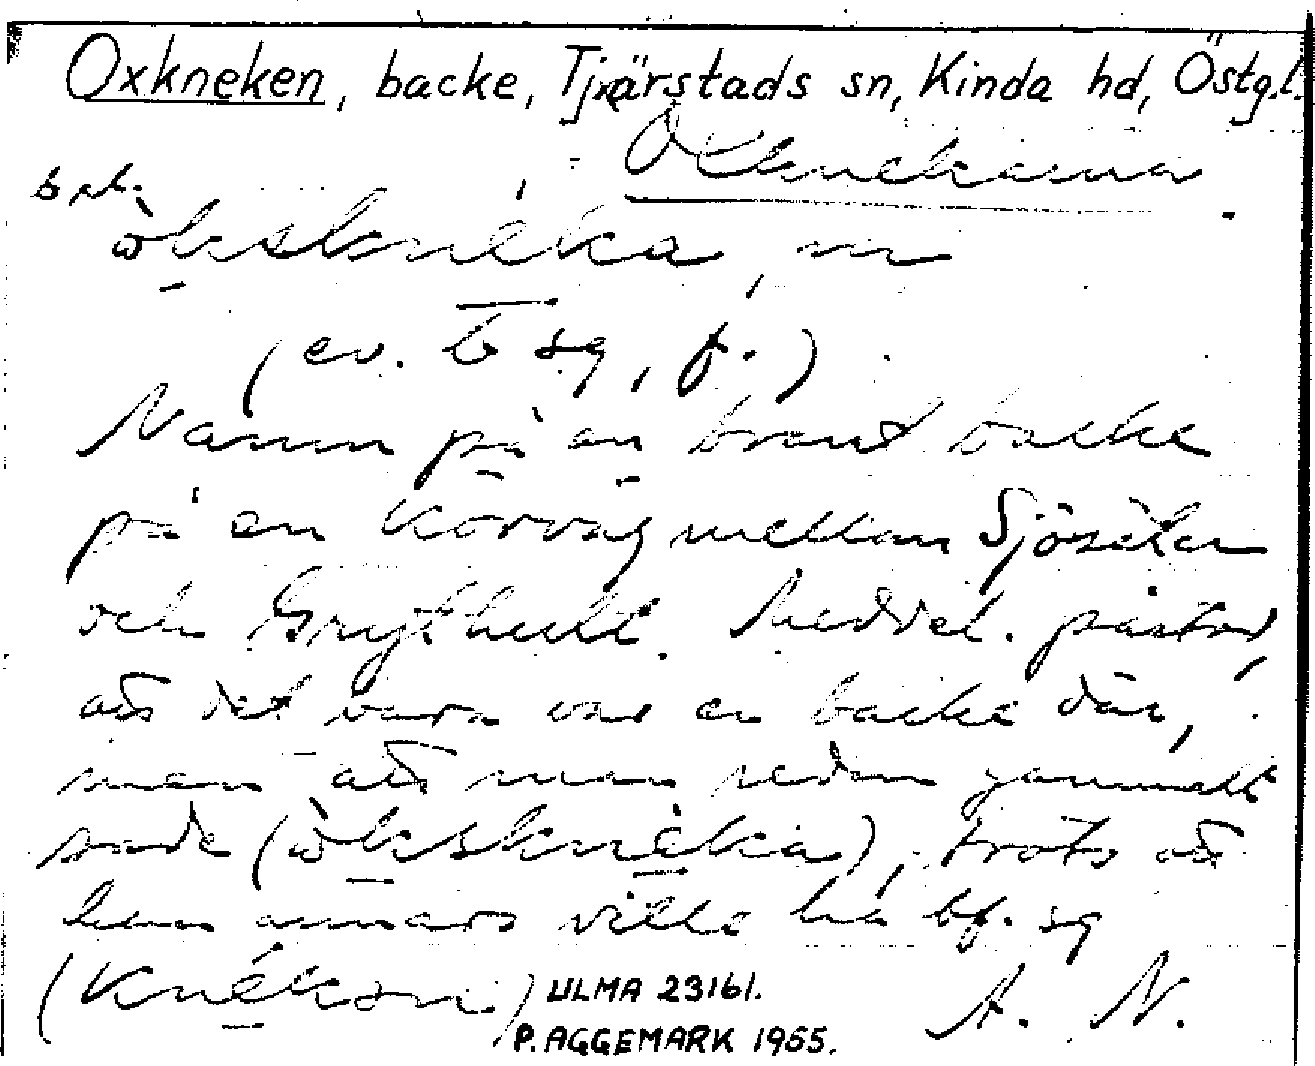 Oxkneken, backe, Tjärstads sn, Kinda hd, Östg.l.
Oxknekarna
b pl.
òksknéka, m
(ev. b sg, f.)
Namn på en brant backe
på en körväg mellan Sjösäter
och Grythult. Meddel. påstod,
att det bara var en backe där,
men att man redan gammalt
sade (òksknèka), trots att
han annars ville ha bf. sg
(knékan)
A. N.
ULMA 23161.
P. AGGEMARK 1955.